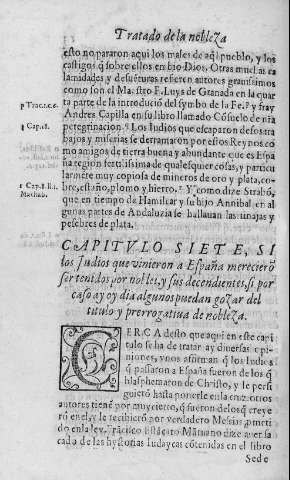 Tratado de la nobleza
esto no pararon aqui los males de aql pueblo, y los
castigos q̃ sobre ellos embio Dios. Otras muchas ca
lamidades y desuẽturas refieren autores grauissimos
como son el Maestro F. Luys de Granada en la quar
ta parte de la introduciõ del symbolo de la Fe. p y fray
p Trac. 2. c.
Andres Capilla en su libro llamado Cõsuelo de nřa
peregrinacion. Los Iudios que escaparon destos tra
Cap. 18.
bajos y miserias se derramaron por estos Reynos co
mo amigos de tierra buena y abundante que es Espa
ña region fertilissima de qualesquier cosas, y particu
larmente muy copiosa de mineros de oro y plata, co-
bre, estaño, plomo y hierro. Y como dize Strabõ,
Cap. 8. li. 1.
Machab.
que en tiempo de Hamilcar y su hijo Annibal en al
gunas partes de Andaluzia se hallauan las tinajas y
pesebres de plata.
CAPITVLO SIETE, SI
los Iudios que vinieron a España mereciero
ser tenidos por nobles, y sus decendientes, si por
caso ay oy dia algunos puedan gozar del
titulo y prerrogatiua de nobleza.
CERCA desto que aqui en este capi
tulo se ha de tratar ay diuersas opi-
niones, vnos afirman q̃ los Iudios
q̃ passaron a España fueron de los q̃
blasphemaron de Christo, y le persi
guierõ hasta ponerle en la cruz. otros
autores tienẽ por muy cierto, q̃ fueron delos q̃ creye
rõ en el, y le recibierõ por verdadero Messias, prometi
do en la ley. Frãcisco Estacio Maruano dize auer sa
cada de las hystorias Iudaycas cõtenidas en el libro
Sede